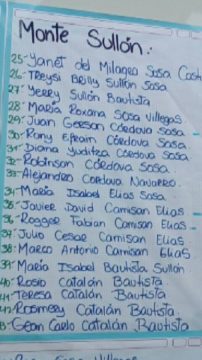 Monte Sullón :
25- Yanet del Milagro Sosa
26- Treysi Brilly Sullón Sosa
27- Yerry Sullón Bautista
28- María Roxana Sosa Villegas
29- Juan Gerson Córdova Sosa
30- Rony Efrain Córdova Sosa
31- Diana Yuditza Córdova Sosa
32- Robinson Córdova Sosa.
33- Alejandro Cordova Navarro.
34- María Isabel Elias Sosa
35- Javier David Camisan Elias
36- Rogger Fabian Camisan Elias
37- Julio Cesar Camisan Elias
38- Marco Antonio Camisan Elias
39- María Isabel Bautista Sullón
40- Rosio Catalán Bautista
41- Teresa Catalán Bautista
42- Rosmery Catalán Bautista.
43- Gean Carlo Catalán Bautista